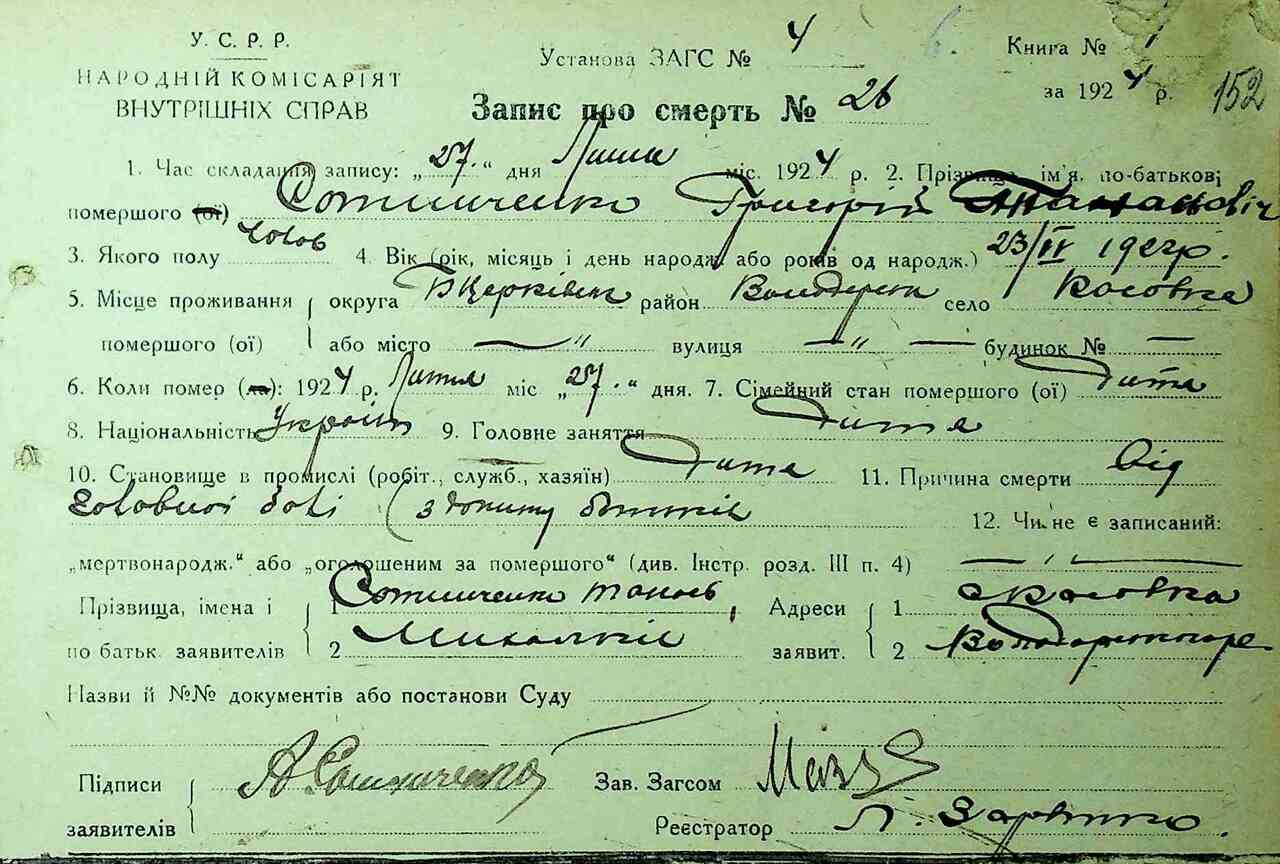 У. С. Р. Р.
НАРОДНІЙ КОМІСАРІЯТ
ВНУТРІШНІХ СПРАВ
Установа ЗАГС № 4
Книга № 1
за 1924 р. 152
Запис про смерть № 26
1. Час складання запису: „27.“ дня Липця міс. 1924 р. 2. Прізвище, ім'я, по-батькові
помершого (ої) Сотниченко Григорій Танасович
3. Якого полу чолов 4. Вік (рік, місяць і день народж. або років од народж.) 23/IV 1924р.
5. Місце проживання округа БЦерківськ район Володарськ село Косовка
помершого (ої) або місто — „ вулиця — „ — будинок № —
6. Коли помер (ла): 1924 р. Липця міс „27.“ дня. 7. Сімейний стан помершого (ої) Дитя
8. Національність Україн 9. Головне заняття Дитя
10. Становище в промислі (робіт., служб., хазяїн) Дитя 11. Причина смерти від
головної болі (з допиту батьків
12. Чи не є записаний:
„мертвонародж.“ або „оголошеним за помершого“ (див. Інстр. розд. III п. 4) — „ —
Прізвища, імена і 1 Сотниченко Танась, Адреси 1 с Косовка
по батьк. заявителів 2 заявит. 2
Назви й №№ документів або постанови Суду
Підписи А. Сотниченко Зав. Загсом
заявителів Реєстратор